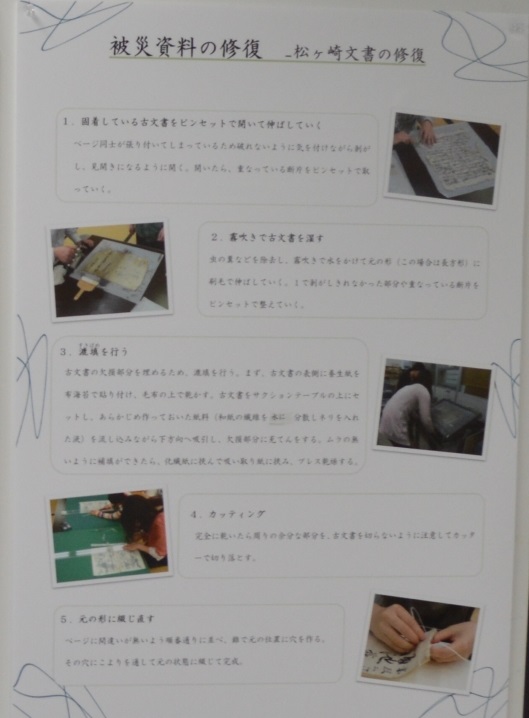 被災資料の修復 –松ヶ崎文書の修復
1．固着している古文書をピンセットで開いて伸ばしていく
ページ同士が張り付いてしまっているため破れないように気を付けながら剥が
し、見開きになるように開く。開いたら、重なっている断片をピンセットで取
っていく。
2．霧吹きで古文書を湿す
虫の糞などを除去し、霧吹きで水をかけて元の形（この場合は長方形）に
刷毛で伸ばしていく。1で剥がしきれなかった部分や重なっている断片を
ピンセットで整えていく。
3．漉填を行う
古文書の欠損部分を埋めるため、漉填を行う。まず、古文書の表側に養生紙を
布海苔で貼り付け、毛布の上で乾かす。古文書をサクションテーブルの上にセ
ットし、あらかじめ作っておいた紙料（和紙の繊維を水に分散しネリを入れ
た液）を流し込みながら下方向へ吸引し、欠損部分に見てんをする。ムラの無
いように補填ができたら、化繊紙に挟んで吸い取り紙に挟み、プレス乾燥する。
4．カッティング
完全に乾いたら周りの余分な部分を、古文書を切らないように注意してカッタ
ーで切り落とす。
5．元の形に綴じ直す
ページに間違いが無いよう順番通りに並べ、錐で元の位置に穴を作る。
その穴にこよりを通して元の状態に綴じて完成。